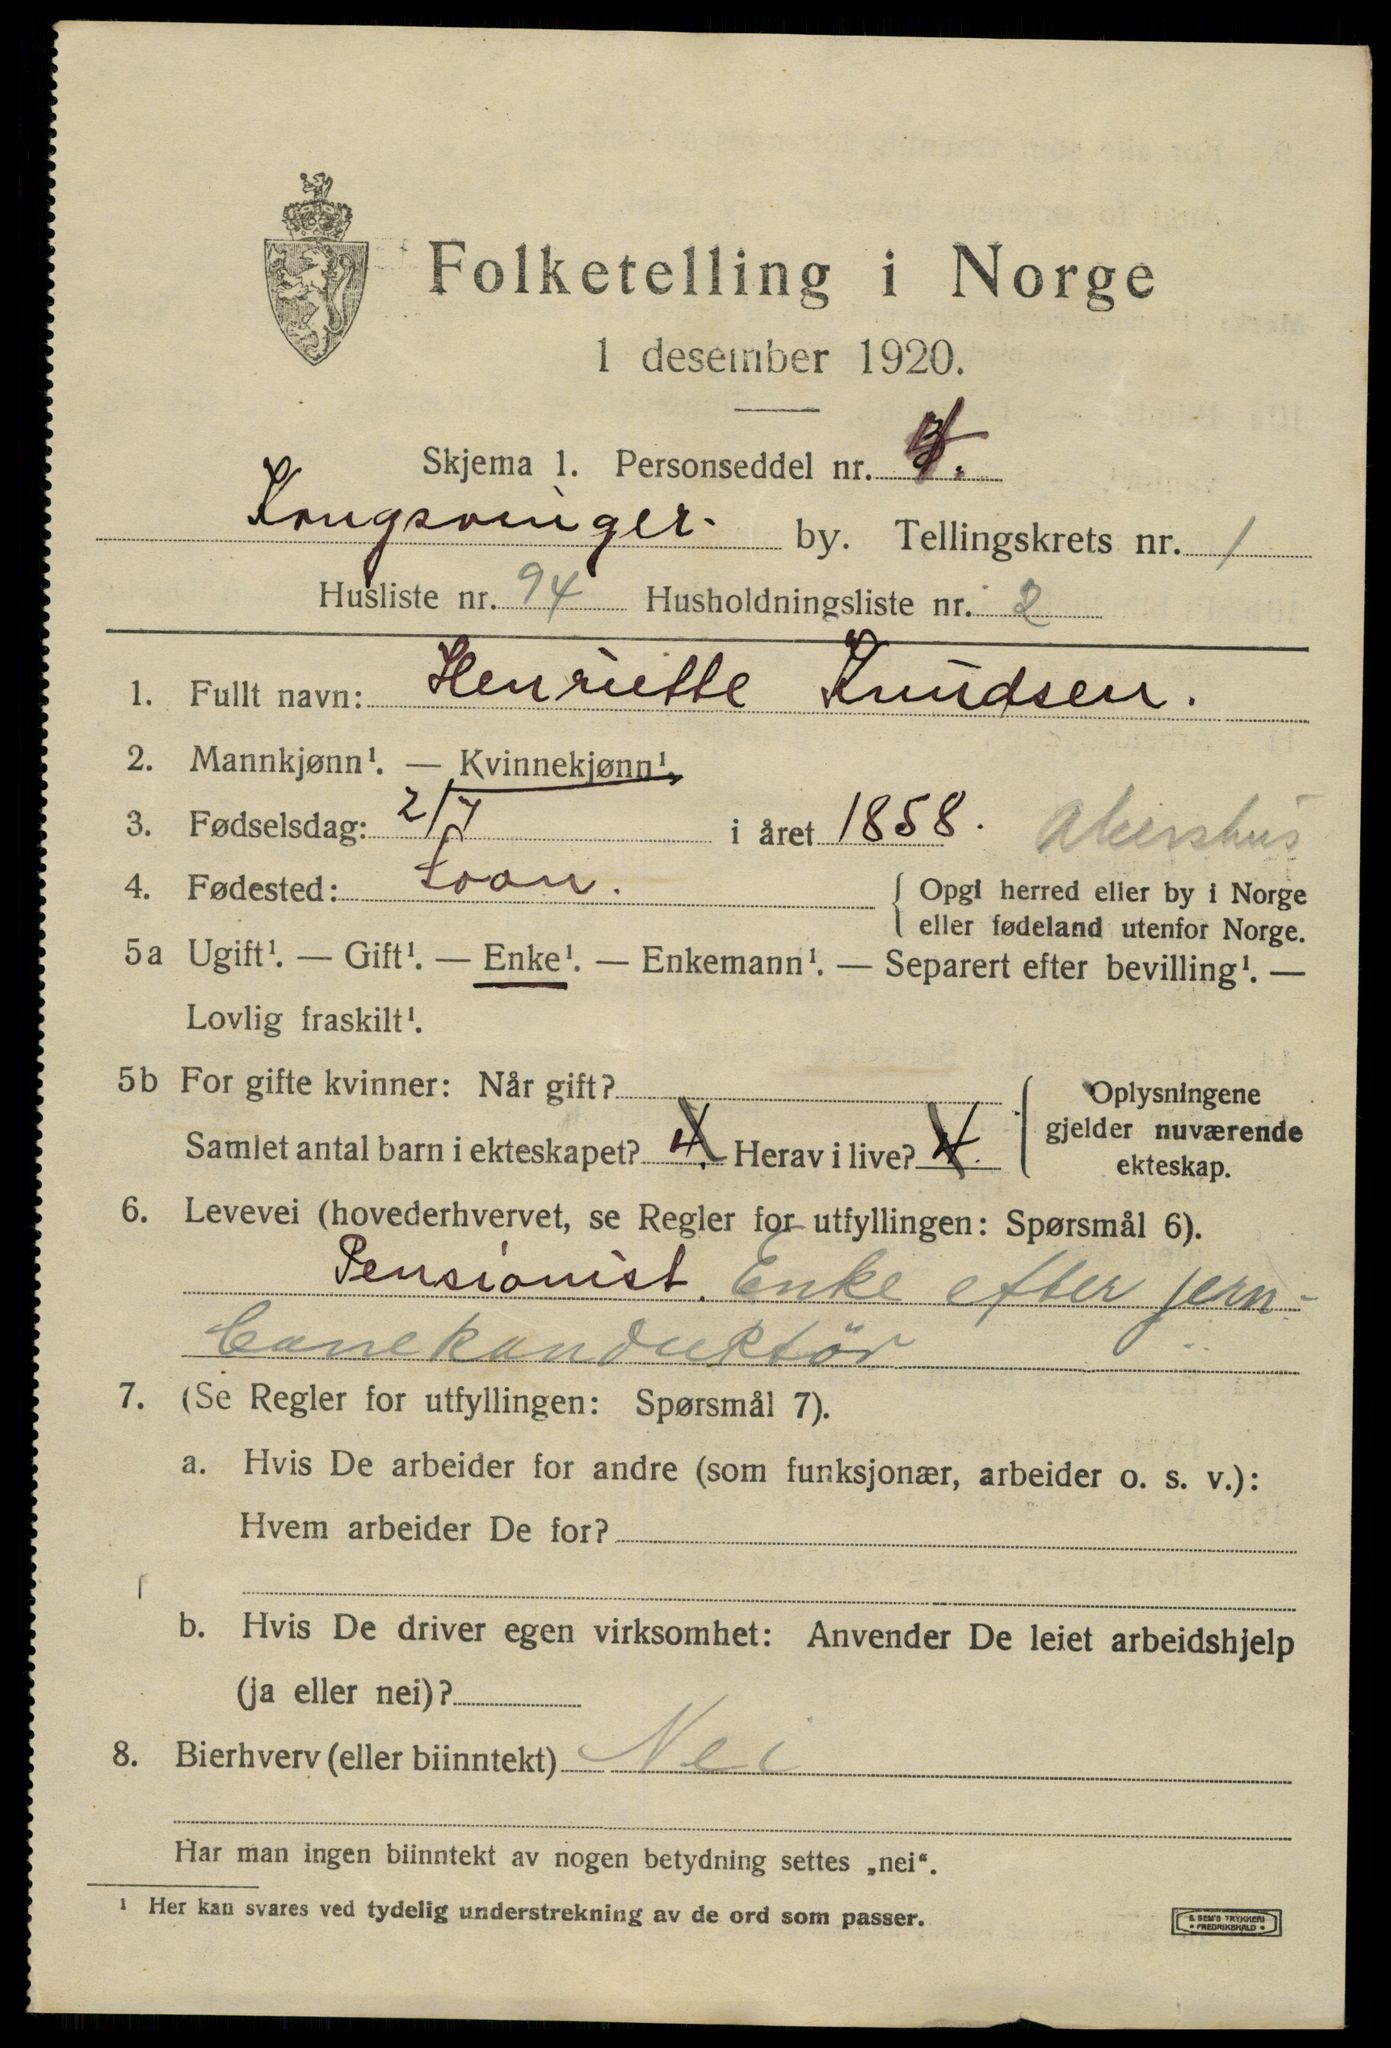 Folketelling i Norge
1 desember 1920.
Skjema 1. Personseddel nr.
Kongsvinger. by. Tellingskrets nr. 1
Husliste nr. 94 Husholdningsliste nr. 2
1. Fullt navn: Henriette Knudsen.
2. Mannkjønn¹. — Kvinnekjønn¹.
3. Fødselsdag: 2/7 i året 1858. Akershus
4. Fødested: { Opgi herred eller by i Norge
eller fødeland utenfor Norge.
5a Ugift¹. — Gift¹. — Enke¹. — Enkemann¹. — Separert efter bevilling¹. —
Lovlig fraskilt¹.
5b For gifte kvinner: Når gift? { Oplysningene
gjelder nuværende
ekteskap.
Samlet antal barn i ekteskapet? 4. Herav i live? 4.
6. Levevei (hovederhvervet, se Regler for utfyllingen: Spørsmål 6).
Pensionist. Enke efter jern-
banekonduktör
7. (Se Regler for utfyllingen: Spørsmål 7).
a. Hvis De arbeider for andre (som funksjonær, arbeider o. s. v.):
Hvem arbeider De for?
b. Hvis De driver egen virksomhet: Anvender De leiet arbeidshjelp
(ja eller nei)?
8. Bierhverv (eller biinntekt) Nei
Har man ingen biinntekt av nogen betydning settes „nei“.
¹ Her kan svares ved tydelig understrekning av de ord som passer.
E SEM'S TRYKKERI
• FREDRIKSHALD •